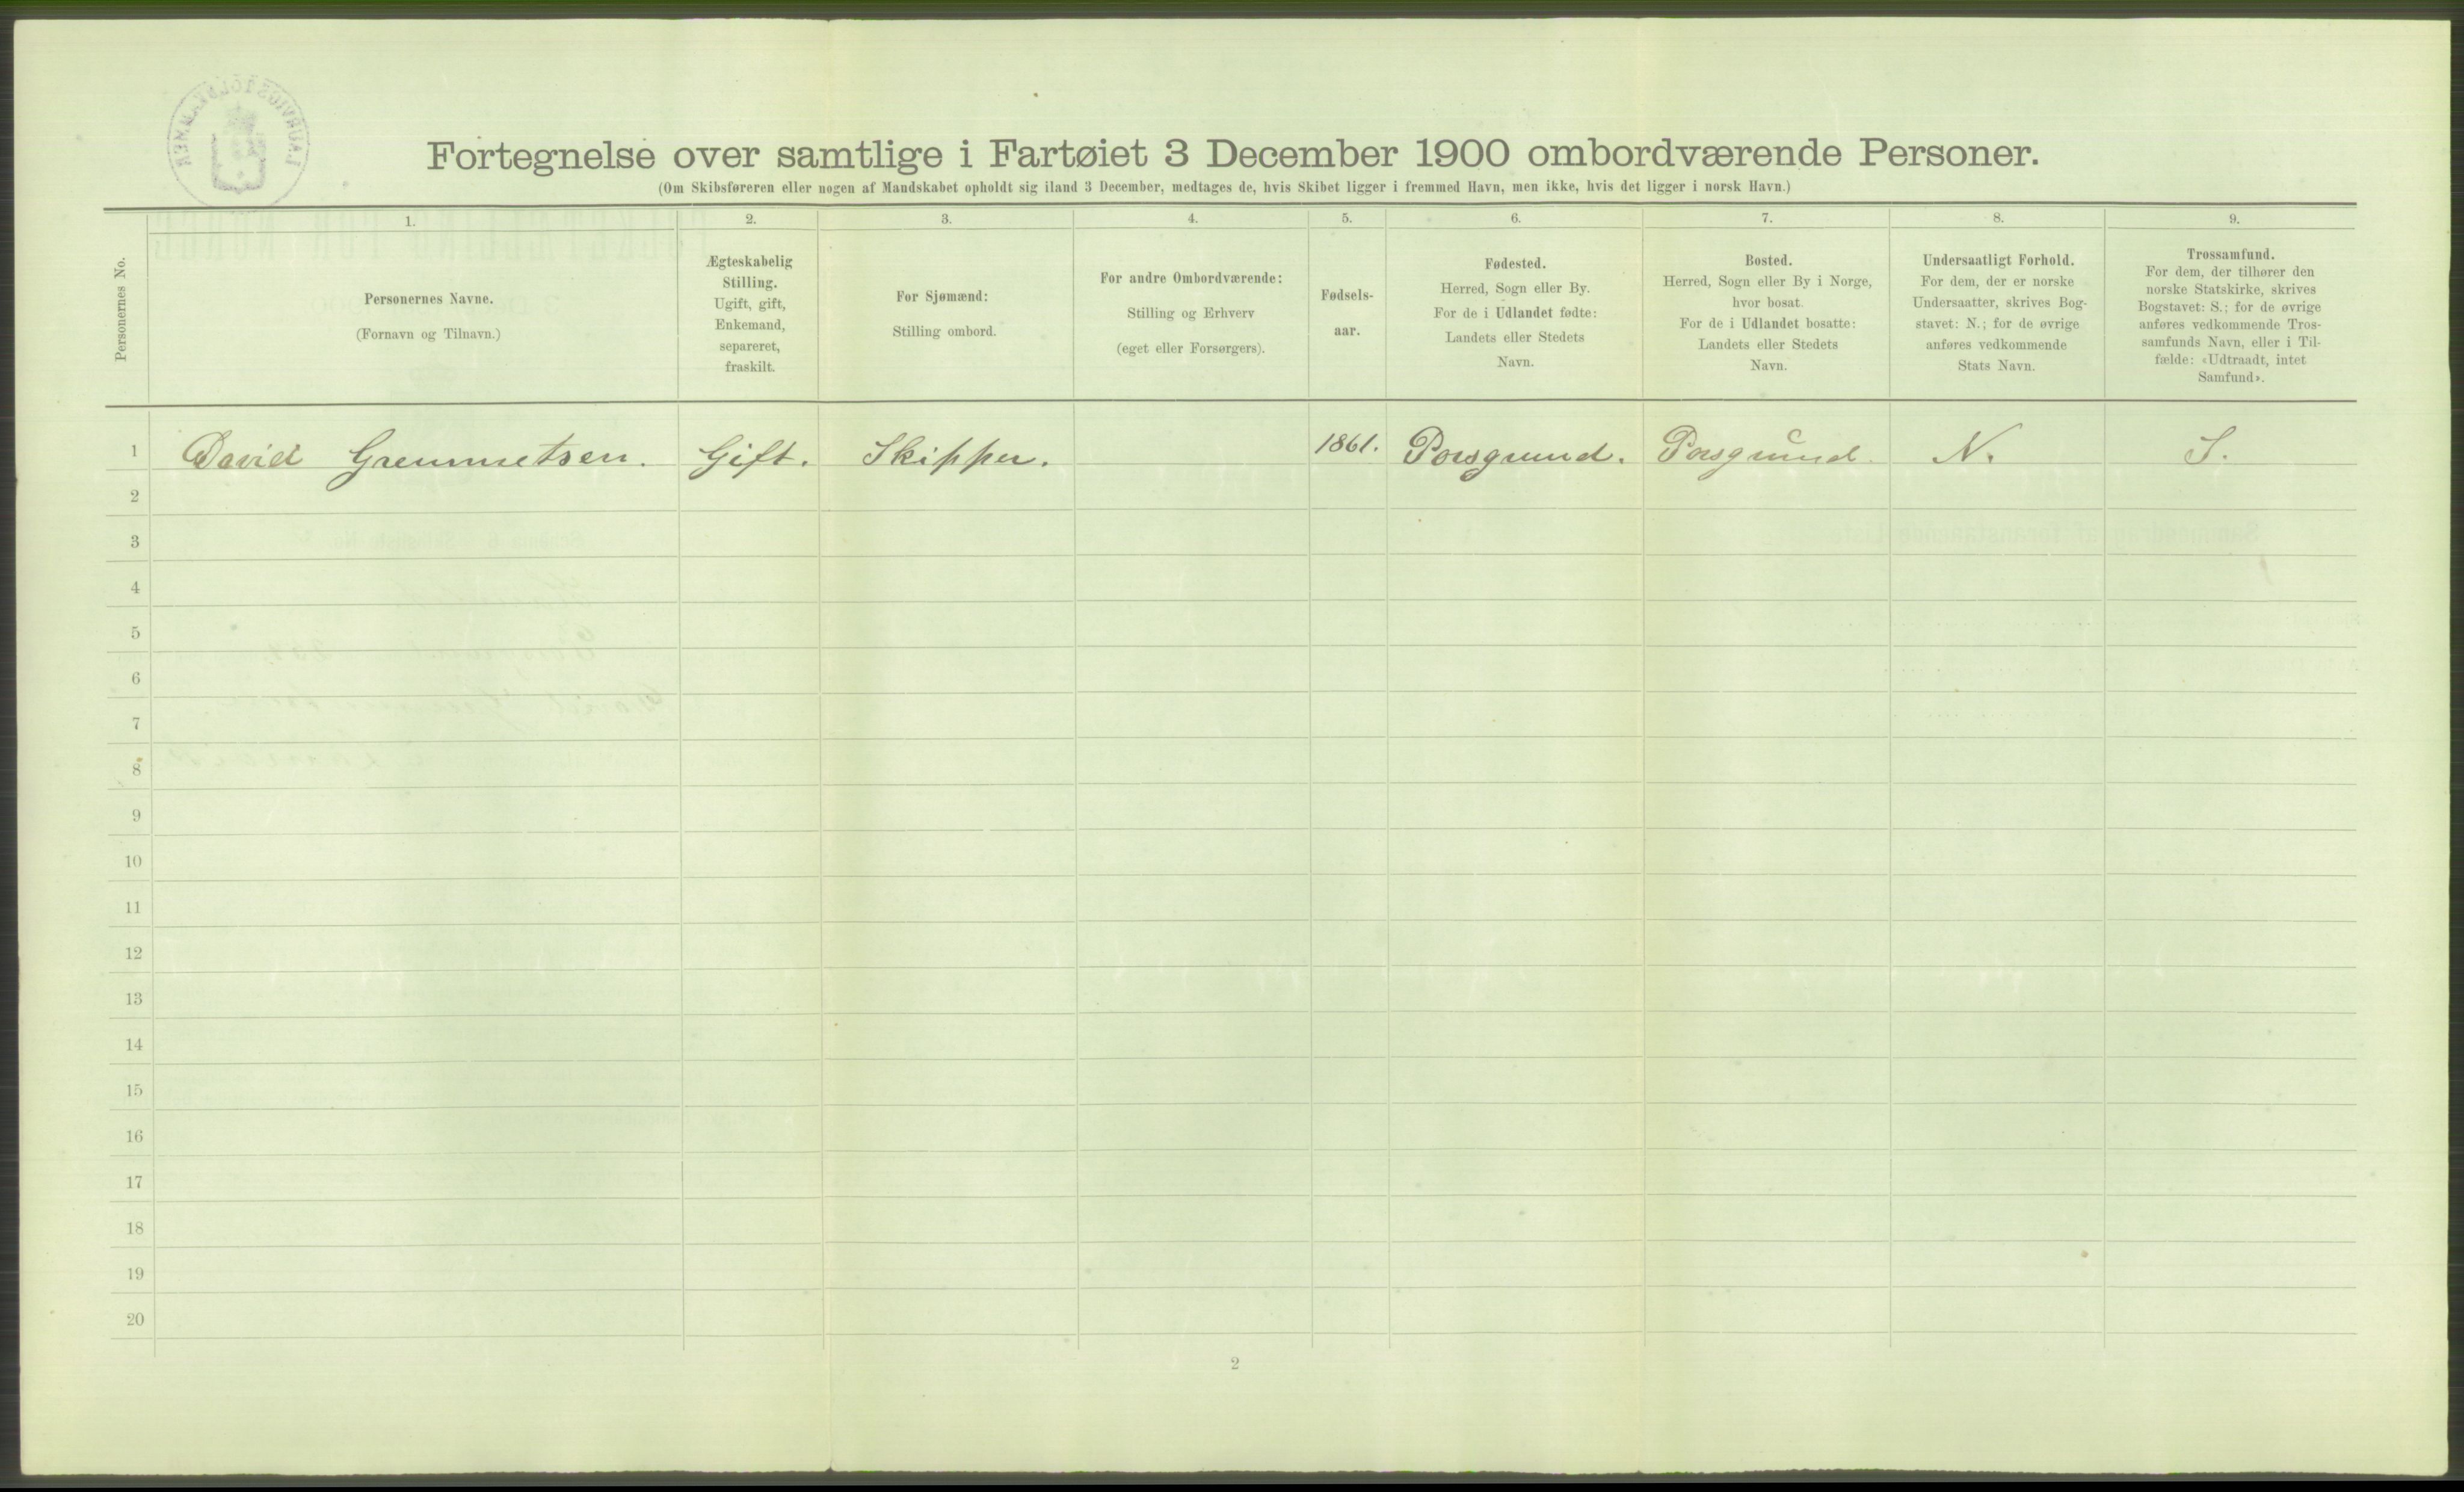 Fortegnelse over samtlige i Fartøiet 3 December 1900 ombordværende Personer.
(Om Skibsføreren eller nogen af Mandskabet opholdt sig iland 3 December, medtages de, hvis Skibet ligger i fremmed Havn, men ikke, hvis det ligger i norsk Havn.)
Personernes No.
1.
Personernes Navne.
(Fornavn og Tilnavn.)
2.
Ægteskabelig
Stilling.
Ugift, gift,
Enkemand,
separeret,
fraskilt.
3.
For Sjømænd:
Stilling ombord.
4.
For andre Ombordværende:
Stilling og Erhverv
(eget eller Forsørgers).
5.
Fødsels-
aar.
6.
Fødested.
Herred, Sogn eller By.
For de i Udlandet fødte:
Landets eller Stedets
Navn.
7.
Bosted.
Herred, Sogn eller By i Norge,
hvor bosat.
For de i Udlandet bosatte:
Landets eller Stedets
Navn.
8.
Undersaatligt Forhold.
For dem, der er norske
Undersaatter, skrives Bog-
stavet: N.; for de øvrige
anføres vedkommende
Stats Navn.
9.
Trossamfund.
For dem, der tilhører den
norske Statskirke, skrives
Bogstavet: S.; for de øvrige
anføres vedkommende Tros-
samfunds Navn, eller i Til-
fælde: «Udtraadt, intet
Samfund».
1 David Gift. Skipper. 1861. Porsgrund. Porsgrund. N. S.
2
3
4
5
6
7
8
9
10
11
12
13
14
15
16
17
18
19
20
2